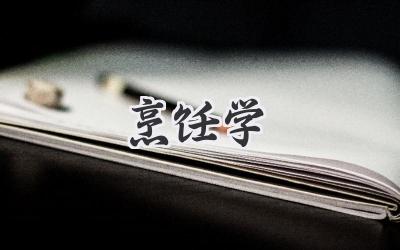 烹饪学